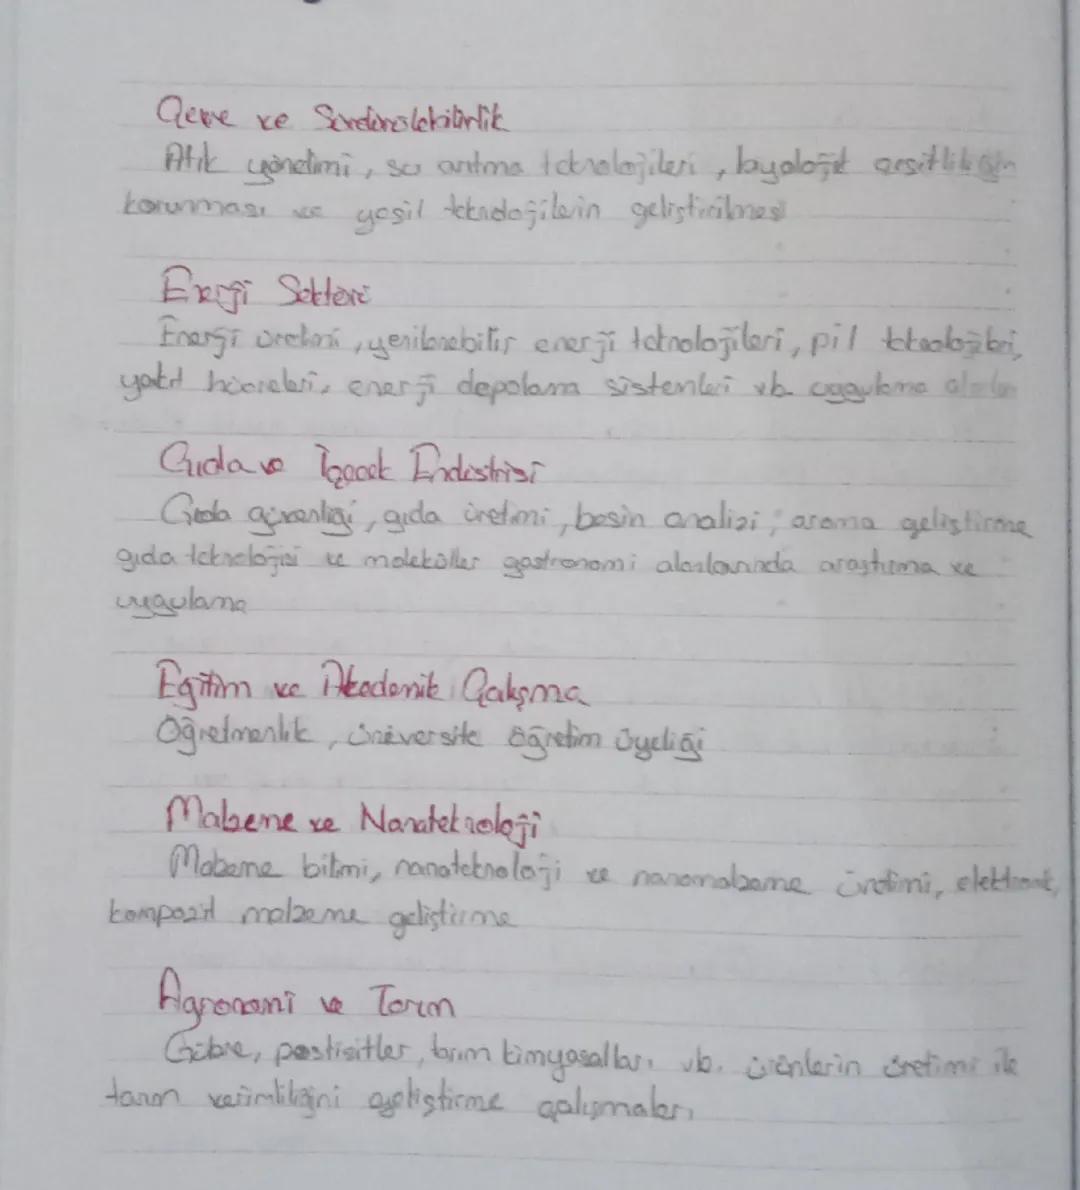 Çevre ve Sürdürülebilirlik
Atık yönetimi, su arıtma teknolojileri, biyolojik çeşitliliğin
korunması ve yeşil teknolojilerin geliştirilmesi
Enerji Sektörü
Enerji üretimi, yenilenebilir enerji teknolojileri, pil teknolojileri,
yakıt hücreleri, enerji depolama sistemleri vb. uygulama alanları
Gıda ve İçecek Endüstrisi
Gıda güvenliği, gıda üretimi, besin analizi, aroma geliştirme
gıda teknolojisi ve moleküller gastronomi alanlarında araştırma ve
uygulama
Eğitim ve Akademik Çalışma
Öğretmenlik, üniversite öğretim üyeliği
Malzeme ve Nanoteknoloji
Malzeme bilimi, nanoteknoloji ve nanomalzeme üretimi, elektronik,
kompozit malzeme geliştirme
Agronomi ve Tarım
Gübre, pestisitler, tarım kimyasalları vb. ürünlerin üretimi ile
tarım verimliliğini geliştirme çalışmaları